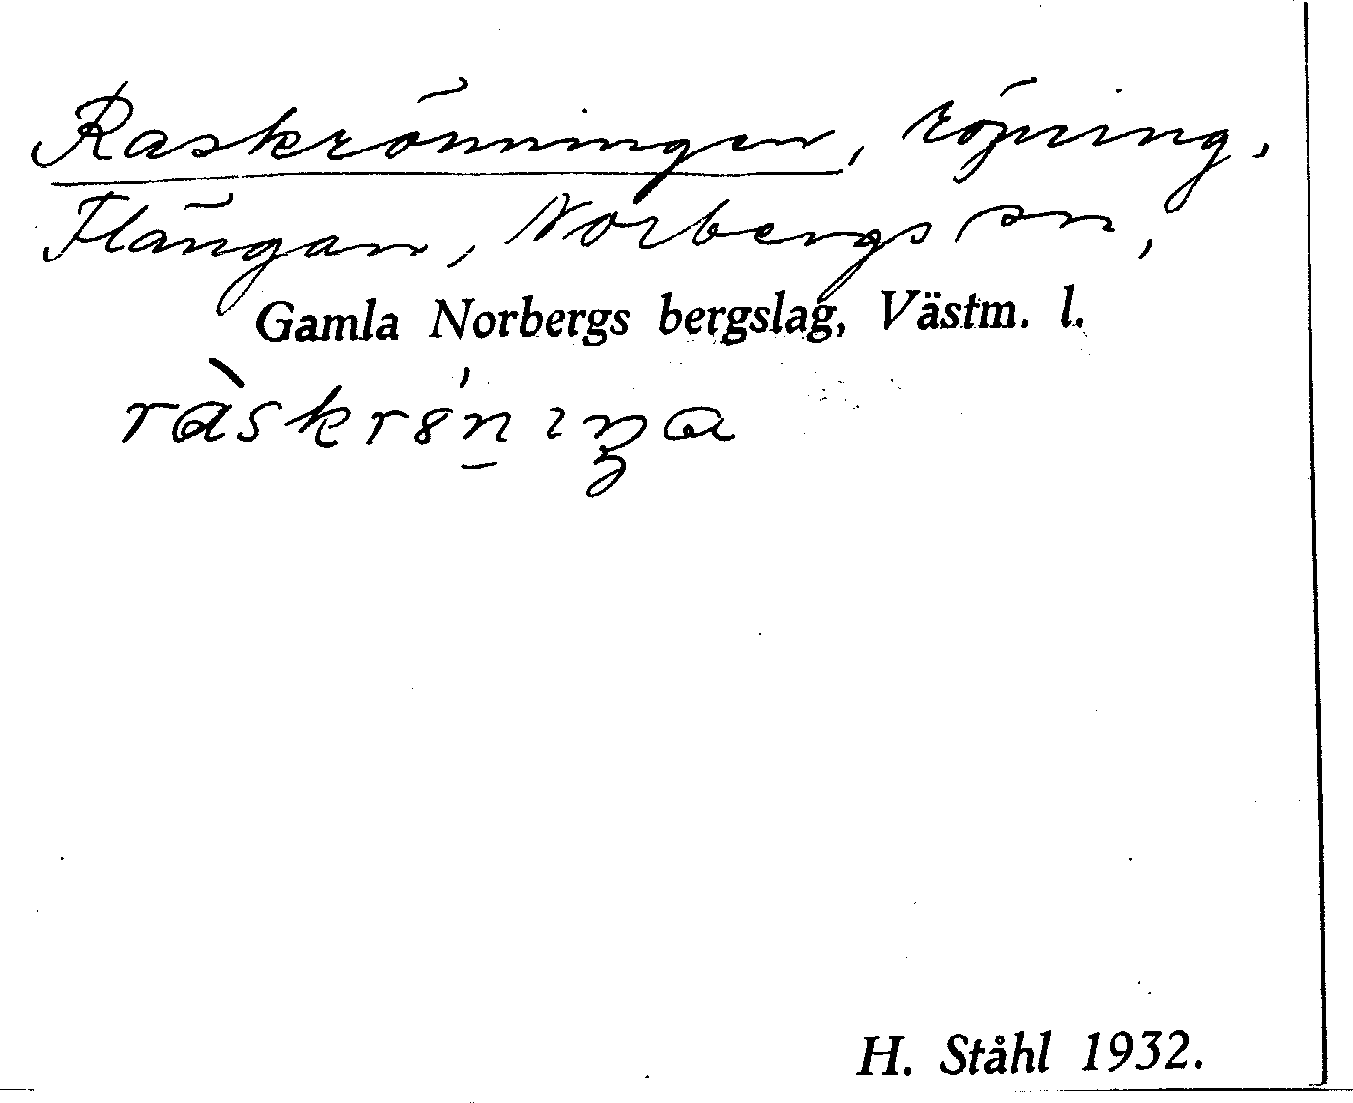 Raskrönningen, röjning,
Flängan, Norbergs sn,
Gamla Norbergs bergslag, Västm. l.
H. Ståhl 1932.